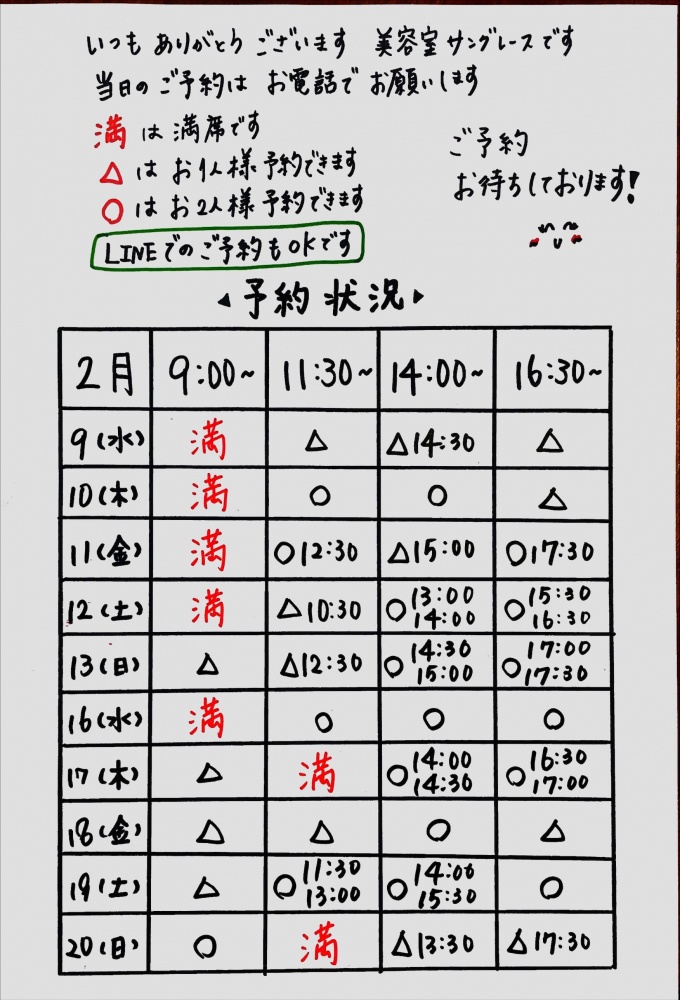 いつも ありがとう ございます 美容室 サングレースです
当日の ご予約は お電話で お願いします
満 は 満席です
△ は お1人様 予約できます
○ は お2人様 予約できます
ご予約
お待ちしております!
LINEでのご予約もOKです
◀予約 状況▶
2月 9:00~ 11:30~ 14:00~ 16:30~
9(水) 満 △ △14:30 △
10(木) 満 ○ ○ △
11(金) 満 ○12:30 △15:00 ○17:30
12(土) 満 △10:30 ○13:00 14:00 ○15:30 16:30
13(日) △ △12:30 ○14:30 15:00 ○17:00 17:30
16(水) 満 ○ ○ ○
17(木) △ 満 ○14:00 14:30 ○16:30 17:00
18(金) △ △ ○ △
19(土) △ ○11:30 13:00 ○14:00 15:30 ○
20(日) ○ 満 △13:30 △17:30